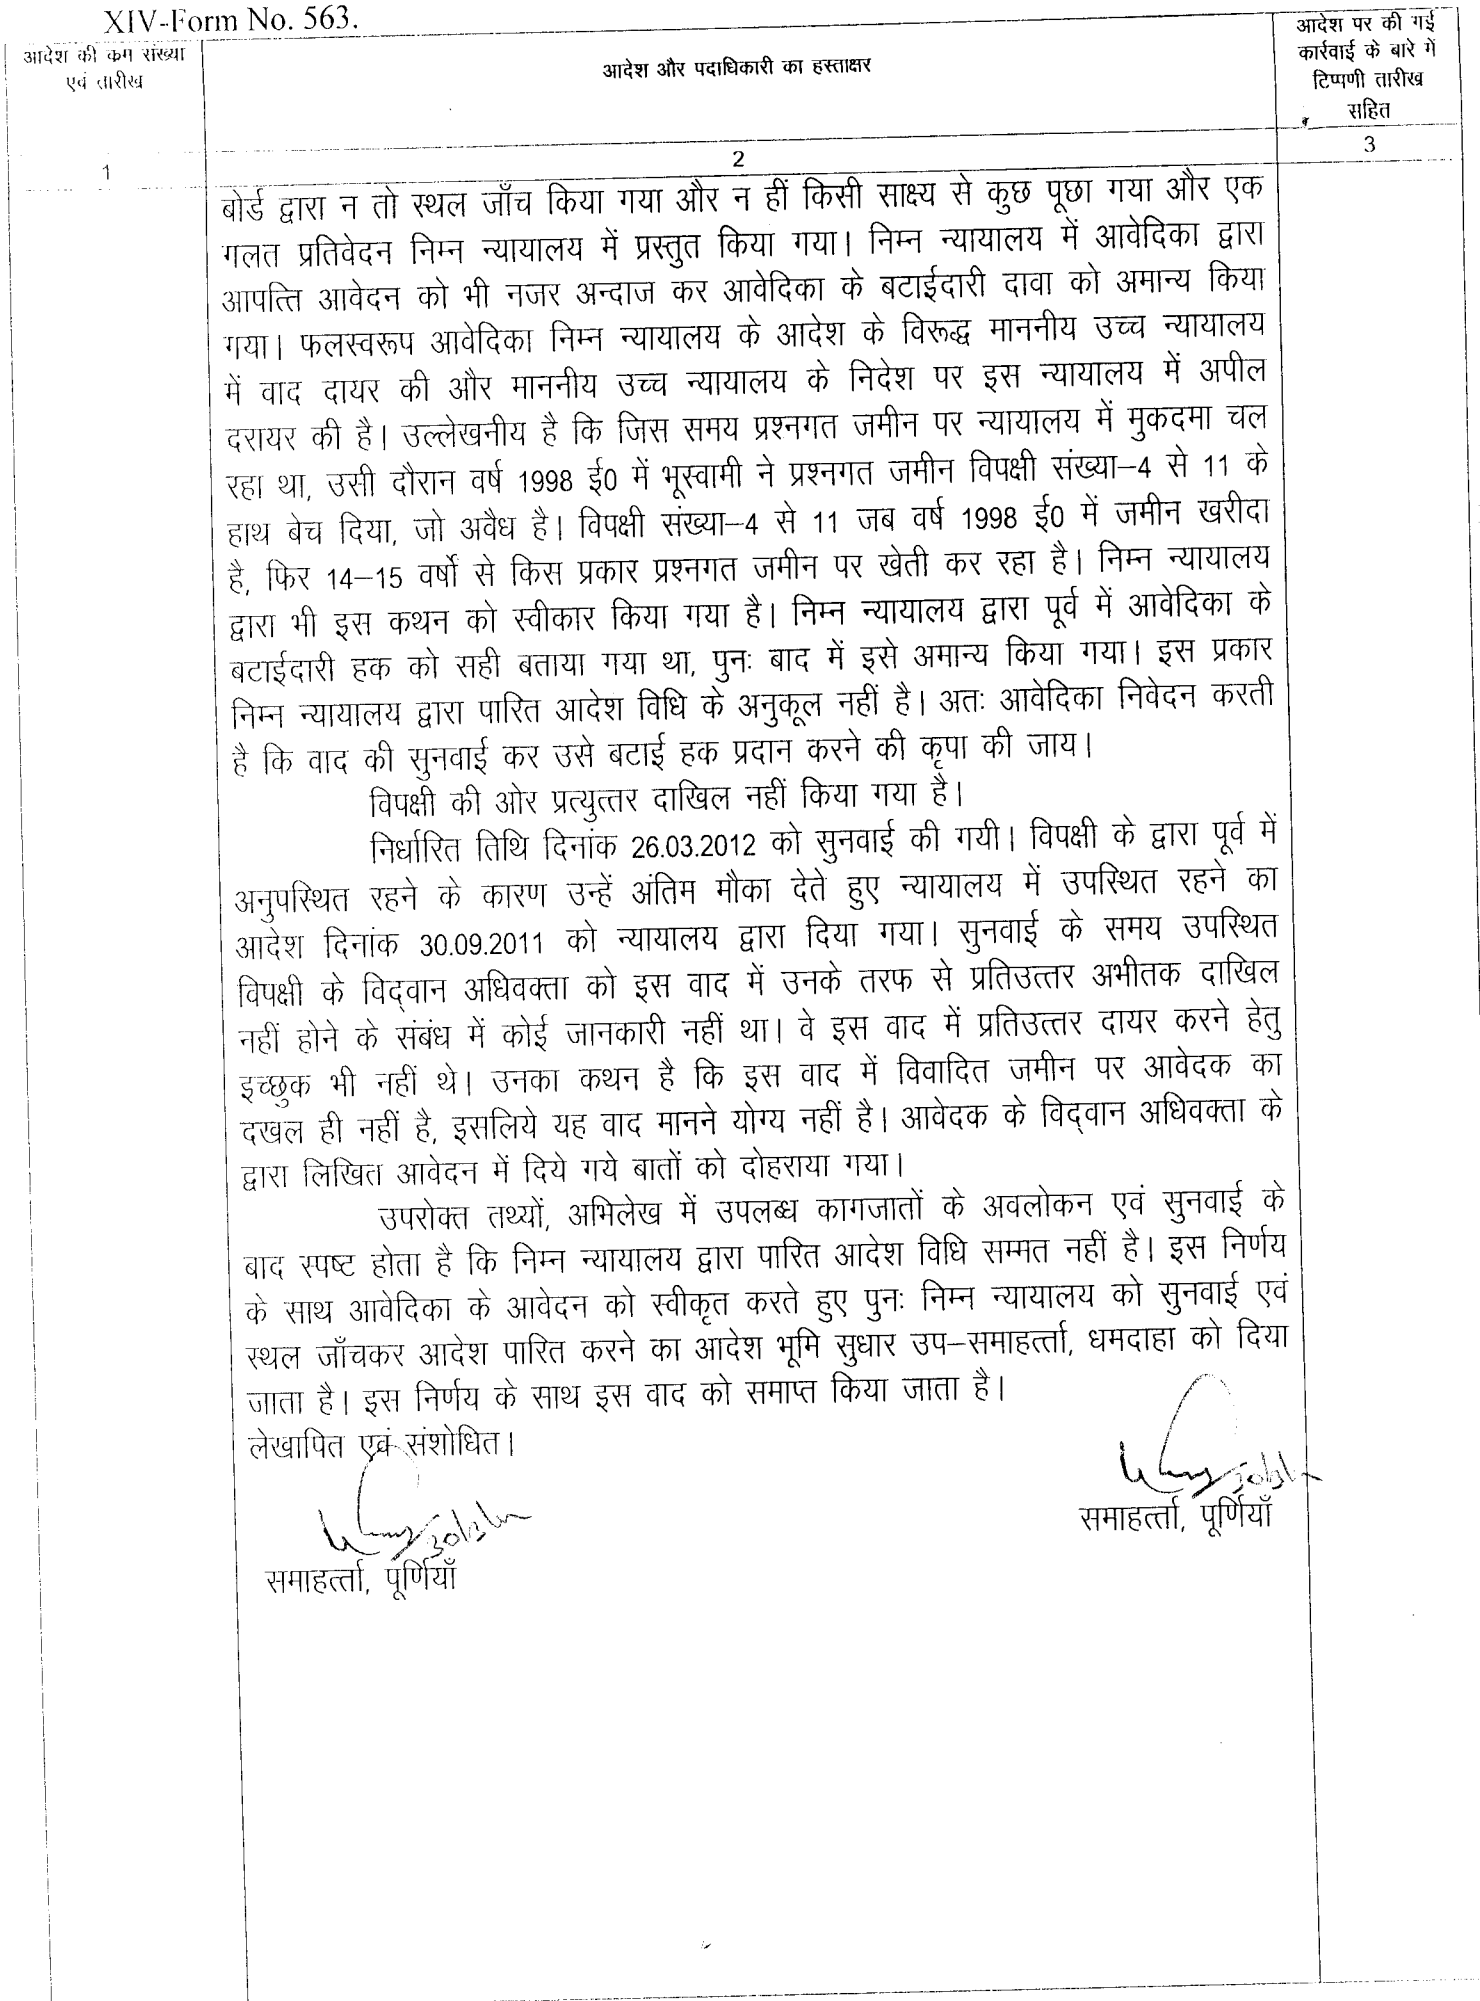 XIV-Form No. 563.
आदेश की कम संख्या
एवं तारीख
आदेश और पदाधिकारी का हस्ताक्षर
आदेश पर की गई
कार्रवाई के बारे में
टिप्पणी तारीख
सहित
1
2
3
बोर्ड द्वारा न तो स्थल जाँच किया गया और न हीं किसी साक्ष्य से कुछ पूछा गया और एक
गलत प्रतिवेदन निम्न न्यायालय में प्रस्तुत किया गया। निम्न न्यायालय में आवेदिका द्वारा
आपत्ति आवेदन को भी नजर अन्दाज कर आवेदिका के बटाईदारी दावा को अमान्य किया
गया। फलस्वरूप आवेदिका निम्न न्यायालय के आदेश के विरूद्ध माननीय उच्च न्यायालय
में वाद दायर की और माननीय उच्च न्यायालय के निदेश पर इस न्यायालय में अपील
दरायर की है। उल्लेखनीय है कि जिस समय प्रश्नगत जमीन पर न्यायालय में मुकदमा चल
रहा था, उसी दौरान वर्ष 1998 ई0 में भूस्वामी ने प्रश्नगत जमीन विपक्षी संख्या–4 से 11 के
हाथ बेच दिया, जो अवैध है। विपक्षी संख्या–4 से 11 जब वर्ष 1998 ई0 में जमीन खरीदा
है, फिर 14–15 वर्षो से किस प्रकार प्रश्नगत जमीन पर खेती कर रहा है। निम्न न्यायालय
द्वारा भी इस कथन को स्वीकार किया गया है। निम्न न्यायालय द्वारा पूर्व में आवेदिका के
बटाईदारी हक को सही बताया गया था, पुनः बाद में इसे अमान्य किया गया। इस प्रकार
निम्न न्यायालय द्वारा पारित आदेश विधि के अनुकूल नहीं है। अतः आवेदिका निवेदन करती
है कि वाद की सुनवाई कर उसे बटाई हक प्रदान करने की कृपा की जाय।
विपक्षी की ओर प्रत्युत्तर दाखिल नहीं किया गया है।
निर्धारित तिथि दिनांक 26.03.2012 को सुनवाई की गयी। विपक्षी के द्वारा पूर्व में
अनुपस्थित रहने के कारण उन्हें अंतिम मौका देते हुए न्यायालय में उपस्थित रहने का
आदेश दिनांक 30.09.2011 को न्यायालय द्वारा दिया गया। सुनवाई के समय उपस्थित
विपक्षी के विद्‌वान अधिवक्ता को इस वाद में उनके तरफ से प्रतिउत्तर अभीतक दाखिल
नहीं होने के संबंध में कोई जानकारी नहीं था। वे इस वाद में प्रतिउत्तर दायर करने हेतु
इच्छुक भी नहीं थे। उनका कथन है कि इस वाद में विवादित जमीन पर आवेदक का
दखल ही नहीं है, इसलिये यह वाद मानने योग्य नहीं है। आवेदक के विद्‌वान अधिवक्ता के
द्वारा लिखित आवेदन में दिये गये बातों को दोहराया गया।
उपरोक्त तथ्यों, अभिलेख में उपलब्ध कागजातों के अवलोकन एवं सुनवाई के
बाद स्पष्ट होता है कि निम्न न्यायालय द्वारा पारित आदेश विधि सम्मत नहीं है। इस निर्णय
के साथ आवेदिका के आवेदन को स्वीकृत करते हुए पुनः निम्न न्यायालय को सुनवाई एवं
स्थल जाँचकर आदेश पारित करने का आदेश भूमि सुधार उप–समाहर्त्ता, धमदाहा को दिया
जाता है। इस निर्णय के साथ इस वाद को समाप्त किया जाता है।
लेखापित एवं संशोधित।
समाहर्त्ता, पूर्णियाँ
समाहर्त्ता, पूर्णियाँ